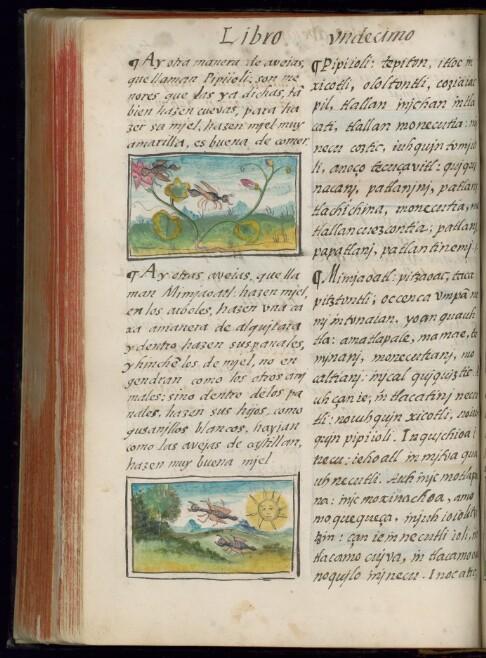 Libro vndecimo
¶ Ay otra manera de avejas,
que llaman Pipiioli; son me
nores que las ya dichas, tã
bien hazen cuevas, para ha
zer su mjel, hazen mjel muy
amarilla, es buena de comer.
¶ Ay otras avejas, que lla
man Mimjaoatl: hazen mjel,
en los arboles, hazen vna ca
xa amanera de alqujtara
y dentro hazen sus panales,
y hinchẽ los de mjel, no en
gendran como los otros anj
males: sino dentro de los pa
nales, hazen sus hijos, como
gusanjllos blancos, hazian
como las avejas de castillan,
hazen muy buena mjel
¶ Pipiioli: tepiton, itloc in
xicotli, ololtontli,
pil, tlallan mjchan mtla
cati, tlallan monecutia:
necu coztic, iuhqujn tomjo
li, anoço tecuçavitl:
nacanj, patlanjnj, patlanj
tlachichina, monecutia,
tlallancuezcontia; patlanj,
papatlanj, patlantinemj.
¶ Mimjaoatl: pitzaoac,
pitztontli, occenca vmpa
nj in tonaian, yoan quauh
tla: amatlapale, mamae,
mjnanj, monecutianj, mo
caltianj: injcal
uh can ie, in tlacatinj necu
tli: no iuhqujn xicotli, no iuh
qujn pipiioli.
necu: iehoatl in mjtoa qua
uhnecutli. Auh injc motlapa
na: injc moxinachoa, amo
moquequeça,
tzin: çan ie in necutli
tlacamo cujva, in tlacamo
noqujlo injnecu.